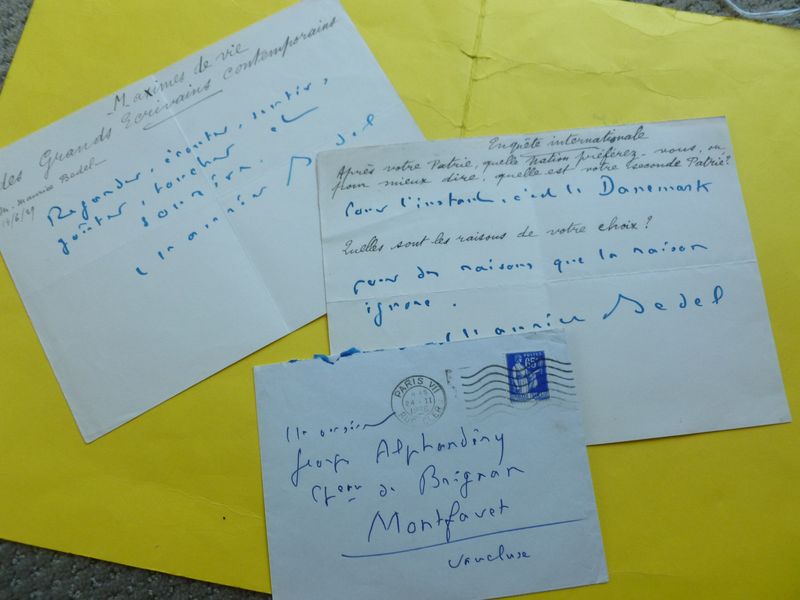 Maximes de vie
des Grands Ecrivains contemporains
M. Maurice Bedel
14/6/39
Regarder, écouter, sentir,
goûter, toucher et
sourire.
Maurice Bedel
Enquête internationale
Après votre Patrie, quelle Nation préférez-vous, ou,
pour mieux dire, quelle est votre seconde Patrie?
Pour l'instant, c'est le Danemark
Quelles sont les raisons de votre choix?
pour des raisons que la raison
ignore.
Maurice Bedel
PARIS VII
24 - II
POSTES
65c
Monsieur
George Alphandéry
Chem de Brignan
Montfavet
Vaucluse